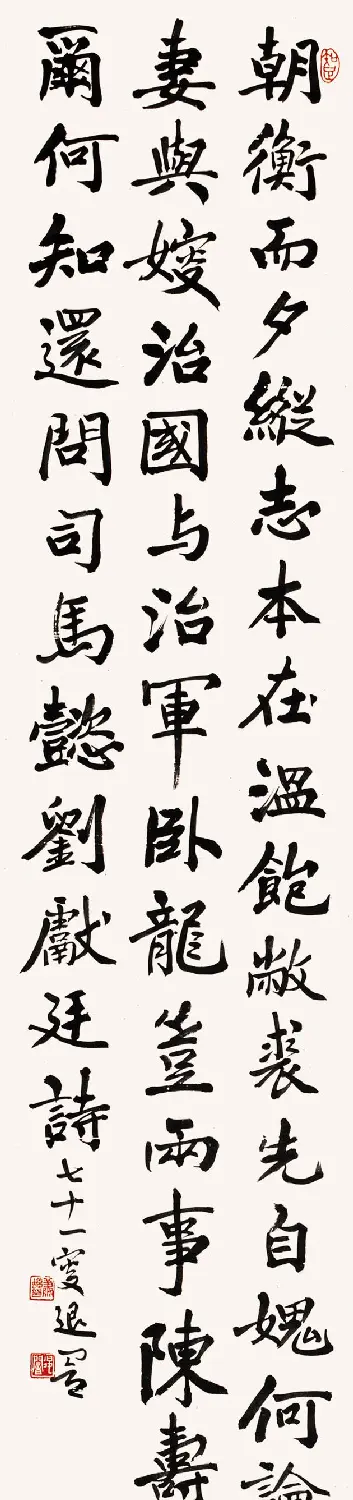 朝衡而夕縱志本在溫飽敝裘先自媿何論
妻與嫂治國与治軍卧龍豈兩事陳壽
爾何知還問司馬懿劉獻廷詩
七十一叟退翁